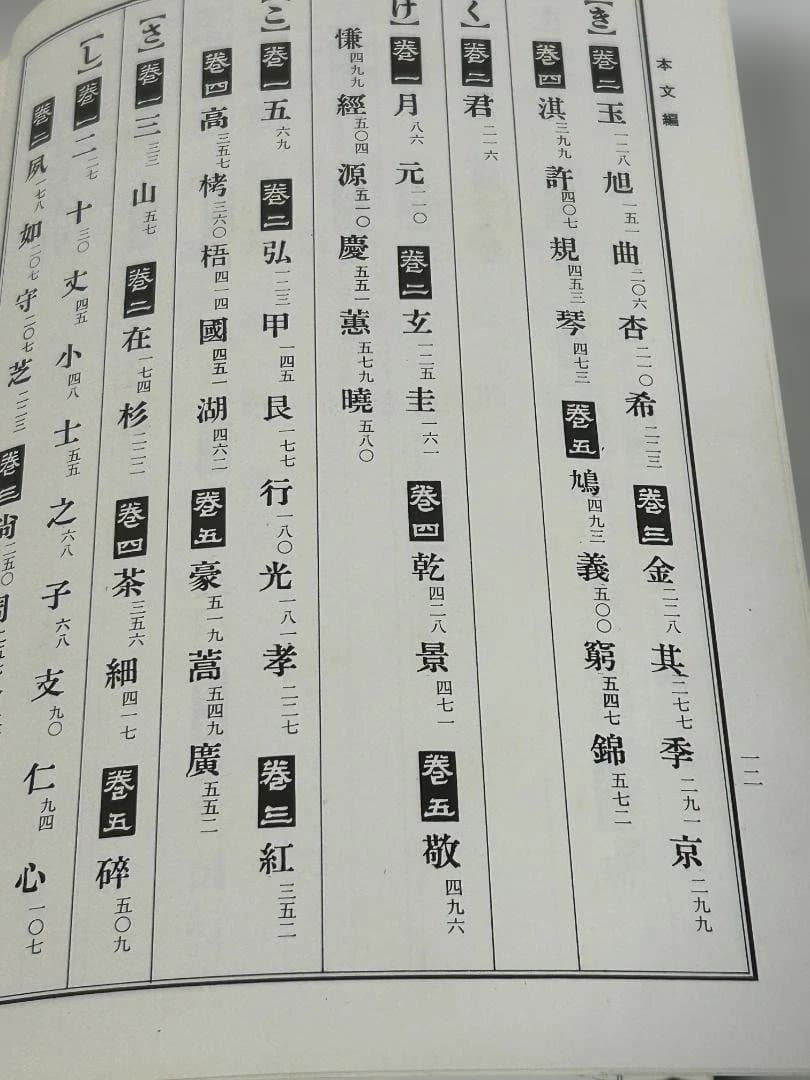 本文編
【き】 巻二 玉 一二八 旭 一五一 曲 二〇六 杏 二一〇 希 二二三 巻三 金 二二八 其 二七七 季 二九一 京 二九九
巻四 淇 三九九 許 四〇七 規 四五三 琴 四七三 巻五 鳩 四九三 義 五〇〇 窮 五四七 錦 五七二
【く】 巻二 君 二一六
け】 巻一 月 八六 元 一一〇 巻二 玄 一二五 圭 一六一 巻四 乾 四二八 景 四七一 巻五 敬 四九六
慊 四九九 經 五〇四 源 五一〇 慶 五五一 蕙 五七九 曉 五八〇
【こ】 巻一 五 六九 巻二 弘 一二三 甲 一四五 艮 一七七 行 一八〇 光 一八一 孝 二二七 巻三 紅 三五二
巻四 高 三五七 栲 三六〇 梧 四一四 國 四五一 湖 四六二 巻五 豪 五一九 蒿 五四九 廣 五五二
【さ】 巻一 三 三三 山 五七 巻二 在 一七四 杉 二二二 巻四 茶 三五六 細 四一七 巻五 碎 五〇九
【し】 巻一 二 二七 十 三〇 丈 四五 小 四八 士 五五 之 六八 子 六八 支 九〇 仁 九四 心 一〇七
巻二 夙 一七八 如 二〇七 守 二〇七 芝 二二三 巻三 尚 二五〇
一二